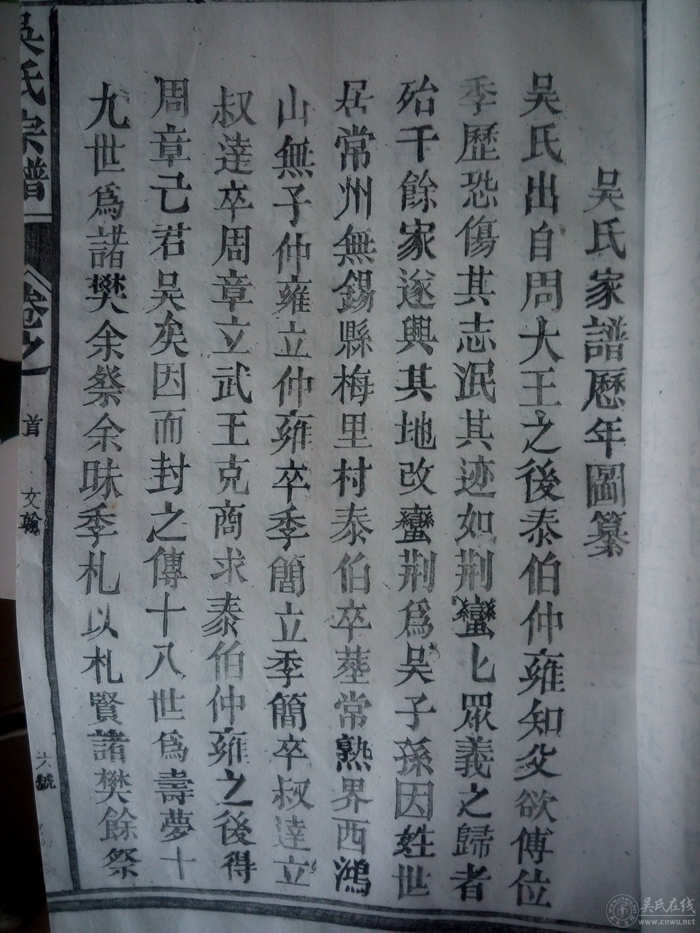 吳氏家譜歷年圖纂
吳氏出自周大王之後泰伯仲雍知父欲傳位
季歷恐傷其志泯其迹如荆蠻匕眾義之歸者
殆干餘家遂興其地改蠻荆爲吳子孫因姓世
居常州無錫縣梅里村泰伯卒塟常熟界西鴻
山無子仲雍立仲雍卒季簡立季簡卒叔達立
叔達卒周章立武王克商求泰伯仲雍之後得
周章己君吳矣因而封之傳十八世爲壽夢十
九世爲諸樊余祭余昧季札以札賢諸樊餘祭
吳氏宗譜
卷之
首
文翰
六號
吳氏在线
www.cnwu.net